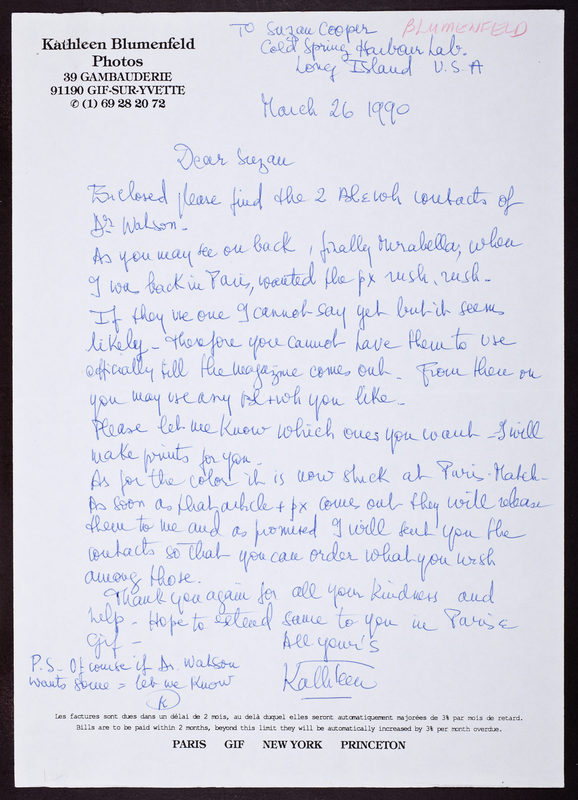 BLUMENFELD
Kathleen Blumenfeld
Photos
39 GAMBAUDERIE
91190 GIF-SUR-YVETTE
✆ (1) 69 28 20 72
To Suzan Cooper
Cold Spring Harbour Lab.
Long Island U.S.A
March 26 1990
Dear Suzan
Enclosed please find the 2 Bl & wh contacts of
Dr Watson-
As you may see on back, finally Mirabella, when
I was back in Paris, wanted the px rush, rush-
If they use one I cannot say yet but it seems
likely- Therefore you cannot have them to use
officially till the magazine comes out- From then on
you may use any Bl + wh you like-
Please let me know which ones you want - I will
make prints for you-
As for the color it is now stuck at Paris-Match-
As soon as that article + px comes out they will release
them to me and as promised I will sent you the
contacts so that you can order what you wish
among those.
Thank you again for all your kindness and
help- Hope to extend same to you in Paris &
Gif-
All your's
Kathleen
P.S- Of course if Dr. Watson
wants some = let me know
K
Les factures sont dues dans un délai de 2 mois, au delà duquel elles seront automatiquement majorées de 3% par mois de retard.
Bills are to be paid within 2 months, beyond this limit they will be automatically increased by 3% per month overdue.
PARIS GIF NEW YORK PRINCETON